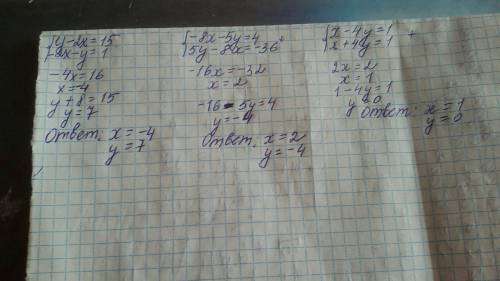 y-2x=15
-2x-y=1
-4x=16
x=-4
y+8=15
y=7
Ответ. x=-4
y=7
-8x-5y=4
5y-8x=-36 +
-16x=-32
x=2
-16-5y=4
y=-4
Ответ. x=2
y=-4
x-4y=1
x+4y=1 +
2x=2
x=1
1-4y=1
y=0
Ответ: x=1
y=0